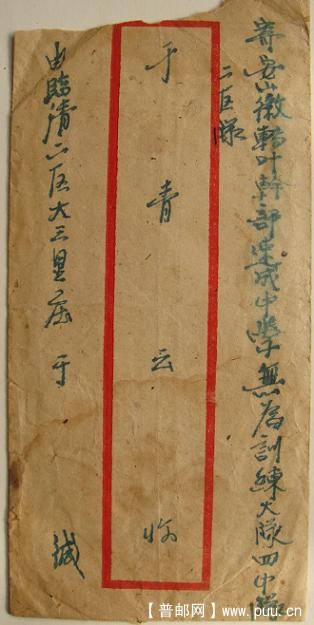 寄安徽轉叶幹部速成中學無為訓練大隊四中隊
二区隊
于青云收
由臨清二区大三里庄于 缄
【普邮网】www.puu.cn